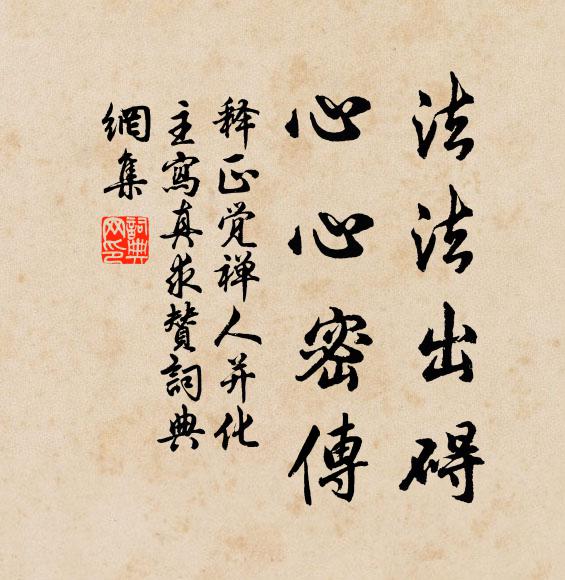 法法出碍
心心密傳
释正觉禅人并化
主寫真求贊詞典
網集
詞典
网印